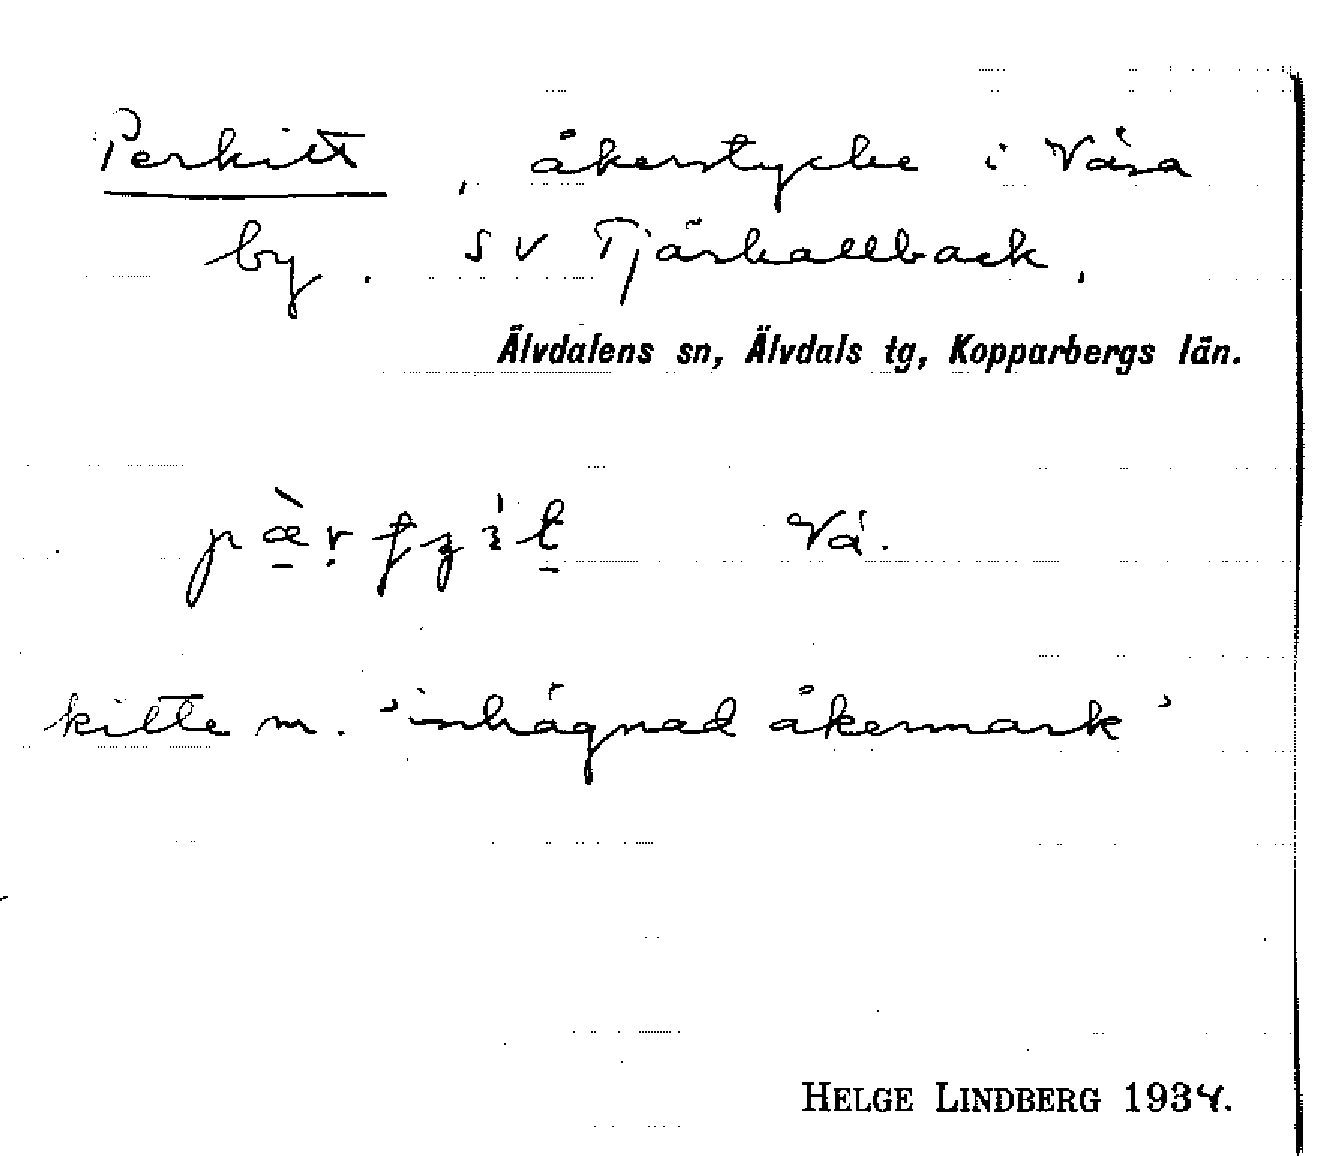 Perkitt, åkerstycke i Våsa
by. SV Tjärkallback.
Älvdalens sn, Älvdals tg, Kopparbergs län.
Vå.
kitte m. 'inhägnad åkermark'
HELGE LINDBERG 1934.